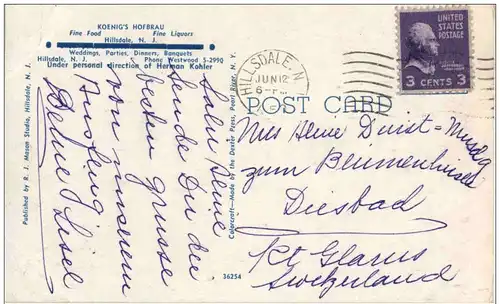 KOENIG'S HOFBRAU
Fine Food Fine Liquors
Hillsdale, N. J.
Weddings, Parties, Dinners, Banquets
Hillsdale, N. J. Phone Westwood 5-2990
Under personal direction of Herman Kohler
Published by R. J. Mason Studio, Hillsdale, N. J.
Colorcraft—Made by the Dexter Press, Pearl River, N. Y.
36254
HILLSDALE, N
JUN 12
6-
UNITED
STATES
POSTAGE
3 CENTS 3
POST CARD
Liebe
Sende Dir die
besten Grüsse
von unserem
Ausflug
Deine Liesel
Miss
zum Blumenhüsli
Diesbad
Kt Glarus
Switzerland